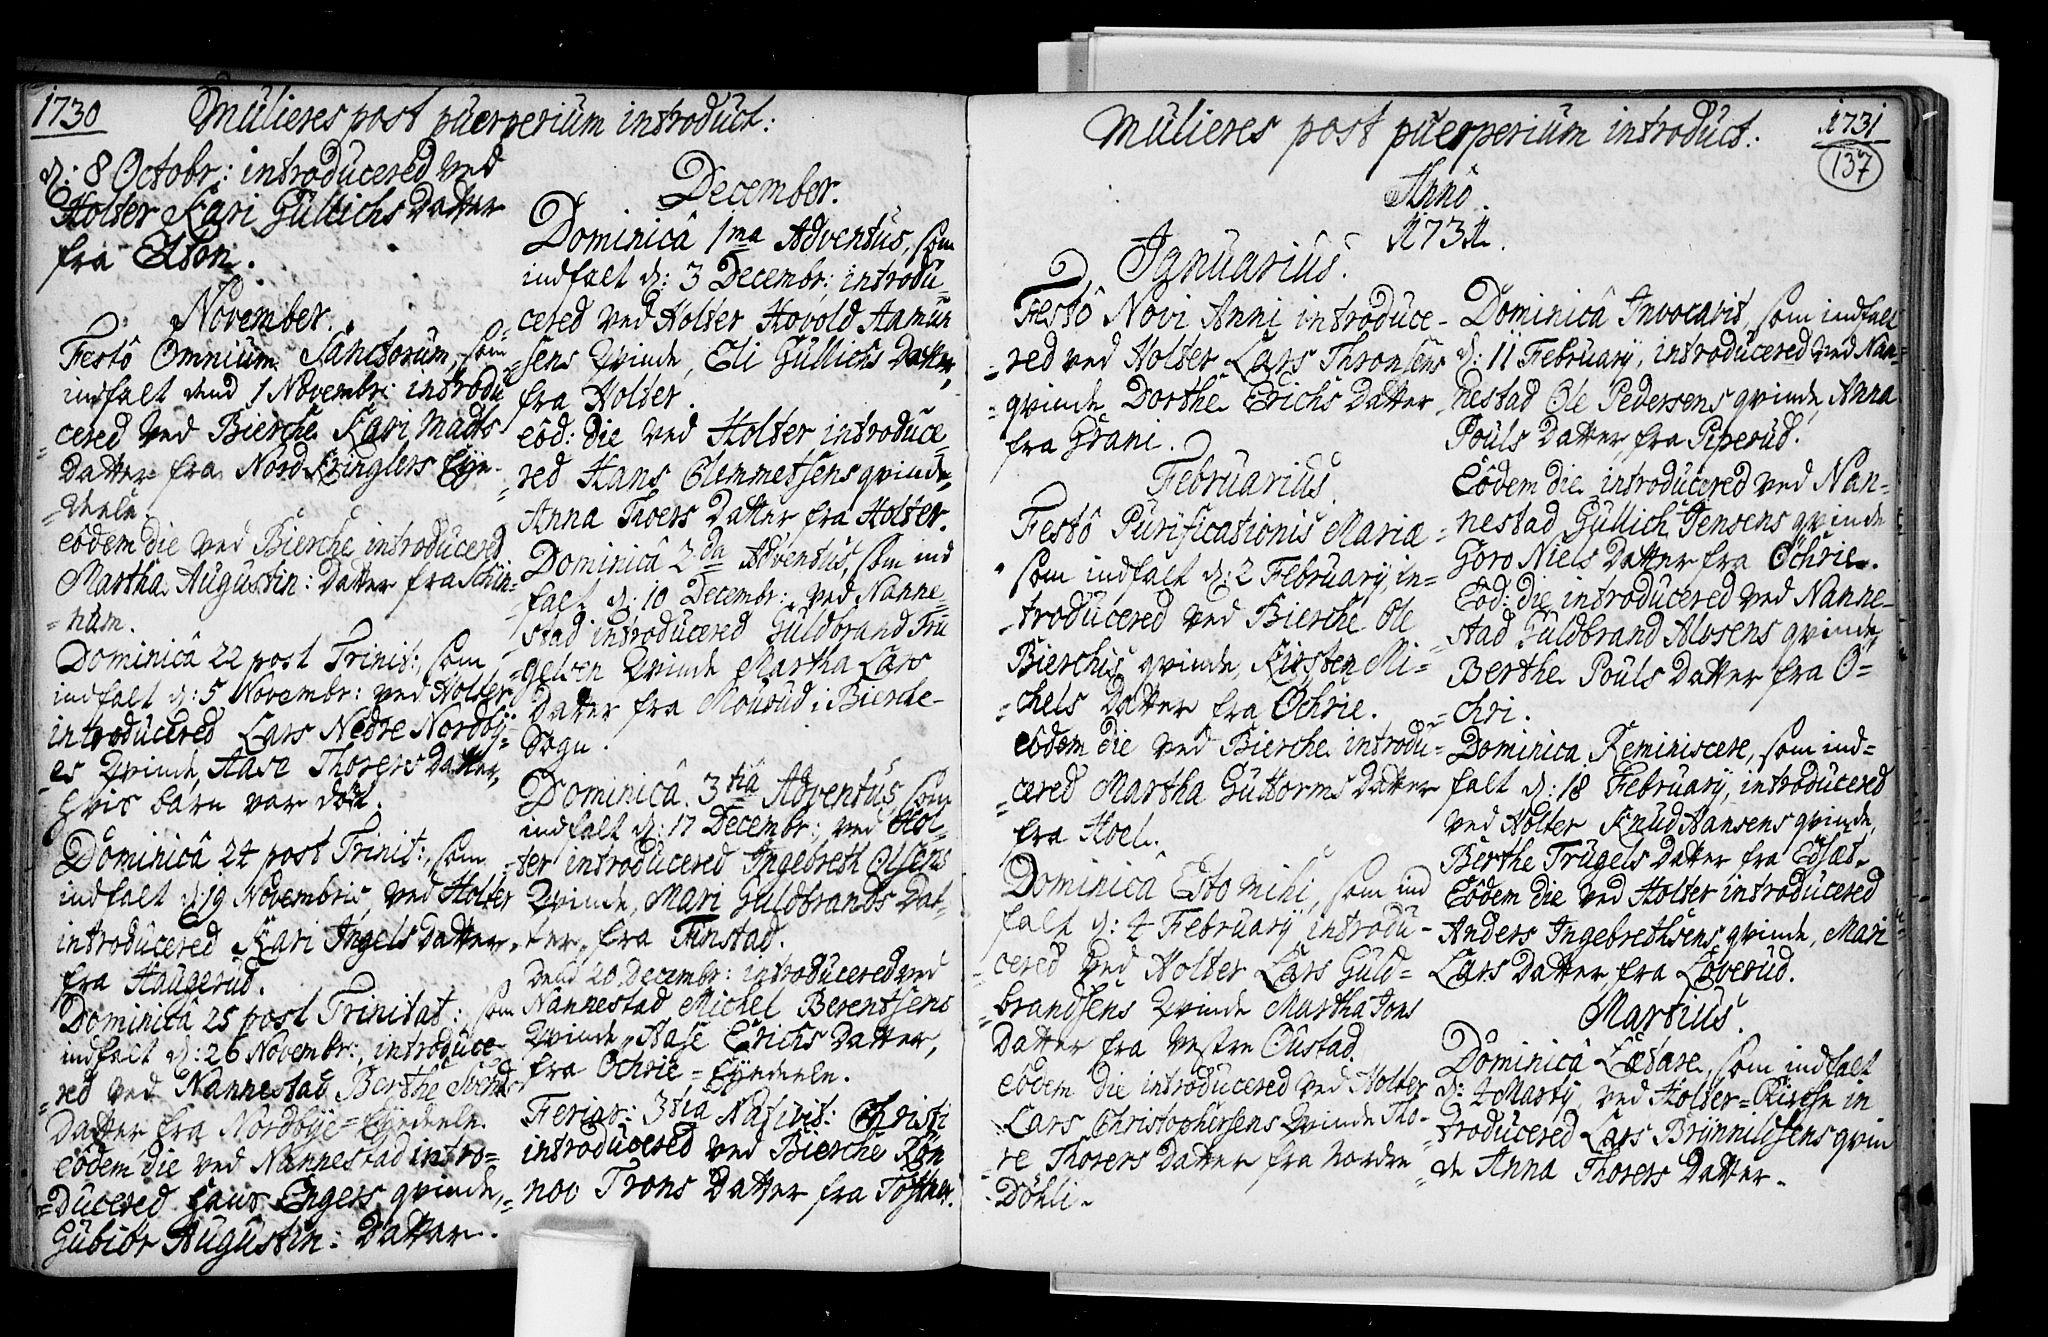 1730
Mulieres post puerperium introduct:
d: 8 Octobr: introducered ved
Holter Kari Gullichs Datter
fra Elton.
November.
Festô Omnium Sanctorum, som
indfalt dend 1 Novembr: introdu
=cered ved Bierche Kari Madts
Datter fra Nord Kringlers Eÿe
=deele.
eôdem die ved Bierche introducered
Martha Augustin: Datter fra Schin-
=num.
Dominicâ 22 post Trinit:, som
indfalt d: 5 Novembr: ved Holter
introducered Lars Nedre Nordbÿ=
es Qvinde, Aase Thorers Datter,
hvis barn var död.
Dominicâ 24 post Trinit:, som
indfalt d: 19 Novembris, ved Holter
introducered Kari Ingels Datter
fra Haugerud.
Dominicâ 25 post Trinitat: som
indfalt d: 26 Novembr:, introduce-
=red ved Nannestad Berthe Svends
Datter fra Nordbÿe=Eÿedeele.
eôdem die ved Nannestad intro=
=ducered Hans Engers qvinde,
Gubiör Augustin: Datter.
December.
Dominicâ 1ma Adventus, som
indfalt d: 3 Decembr: introdu=
cered ved Holter Hovold Hamun
=sens Qvinde, Eli Gullichs Datter,
fra Holter.
eôd: die ved Holter introduce
=red Hans Clemmetsens qvinde,
Anna Thoers Datter fra Holter.
Dominicâ 2da Adventus, som ind
falt d: 10 Decembr: ved Nanne=
stad introducered Guldbrand Tru
=gelsen Qvinde Martha Lars
Datter fra Mourud i Bierche-
Sogn.
Dominicâ 3tia Adventus, som
indfalt d: 17 Decembr:, ved Hol-
=ter introducered Ingebreth Olsens
Qvinde, Mari Guldbrands Dat-
=ter, fra Finstad.
Dend 20 Decembr: introducered ved
Nannestad Michel Berentsens
Qvinde, Aase Erichs Datter,
fra Ochrie=Eÿedeele.
Feriar: 3tia Nativit: Christi
introducered ved Bierche Rön
=nov Trons Datter fra
Mulieres post puerperium introduct:
1731
137
Annô
1731.
Januarius.
Festô Novi Anni introduce-
=red ved Holter Lars Thronsens
=qvinde Dorthe Erichs Datter
fra Grani.
Februarius.
Festô Purificationis Maria
som indfalt d: 2 Februarÿ, in=
=troducered ved Bierche Ole
Bierchis qvinde, Kirsten Mi=
=chels Datter fra Ochrie.
eôdem die ved Bierche introdu=
=cered Martha Guttorms Datter
fra Hoel.
Dominicâ Esto mihi, som ind
falt d: 4 Februarÿ introdu-
=cered ved Holter Lars Guld=
=brandsens Qvinde Martha Jons
Datter fra vestre Oustad.
eôdem die introducered ved Holter
Lars Christophersens Qvinde Tho-
=re Thorers Datter fra nordre
Döhli.
Dominicâ Invocavit, som indfalt
d: 11 Februarÿ, introducered ved Nan=
=nestad Ole Pedersens qvinde, Anna
Pouls Datter, fra Piperud.
Eôdem die introducered ved Nan=
=nestad Gullich Jensens qvinde
Goro Niels Datter fra Ochrie.
Eôd: die introducered ved Nanne-
stad Guldbrand Alvsens qvinde,
Berthe Pouls Datter fra O=
=chri.
Dominica Reminiscere, som ind=
falt d: 18 Februarÿ, introducered
ved Holter Knud Hansens qvinde,
Berthe Trugels Datter fra
Eôdem die ved Holter introducered
Anders Ingebrethsens qvinde, Mari
Lars Datter fra Löverud.
Martius.
Dominicâ Lætare, som indfalt
d: 4 Martÿ, ved Holter=Kirche in
=troducered Lars Brÿnnilssens qvin
=de Anna Thorers Datter.